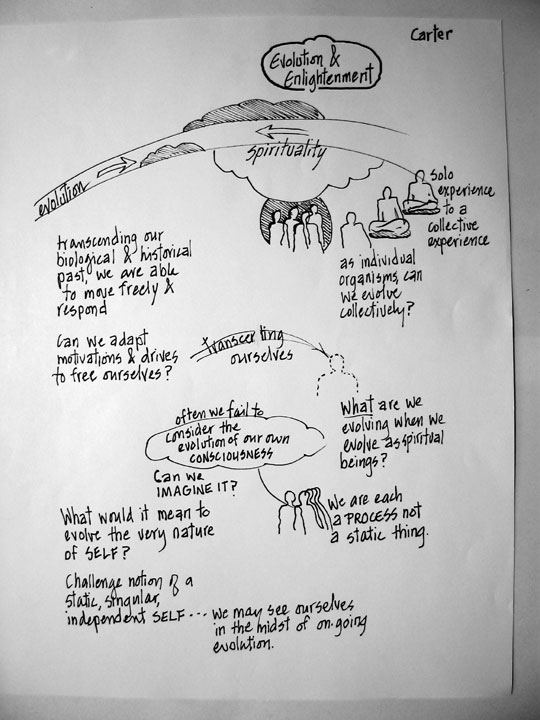 Carter
Evolution &
Enlightenment
evolution
spirituality
solo
experience
to a
collective
experience
transcending our
biological & historical
past, we are able
to move freely &
respond
as individual
organisms, can
we evolve
collectively?
Can we adapt
motivations & drives
to free ourselves?
transcending
ourselves
WHAT are we
evolving when we
evolve as spiritual
beings?
often we fail to
consider the
evolution of our own
CONSCIOUSNESS
Can we
IMAGINE IT?
We are each
a PROCESS not
a static thing.
What would it mean to
evolve the very nature
of SELF?
Challenge notion of a
static, singular,
independent SELF --- we may see ourselves
in the midst of on-going
evolution.